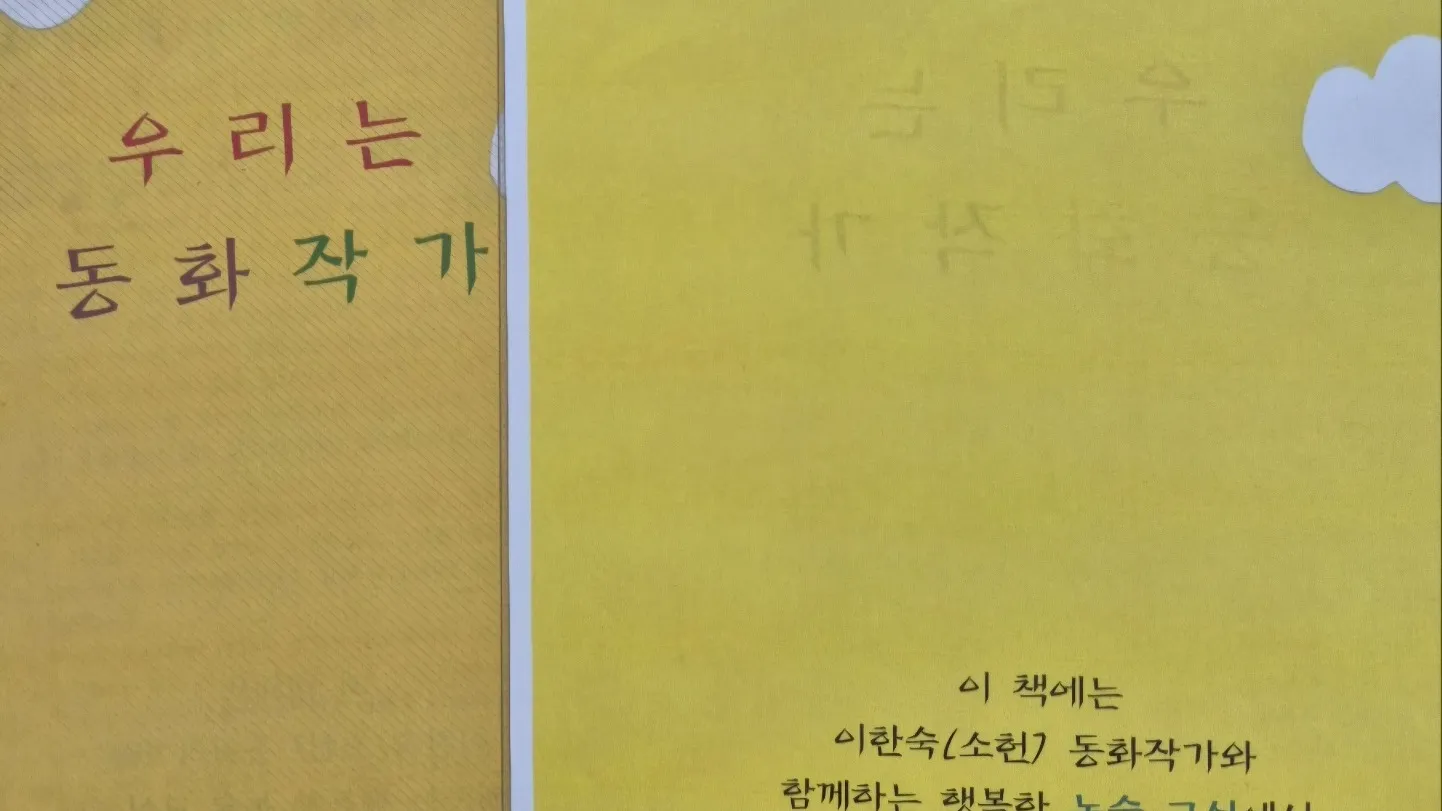 우리는
동화작가
이 책에는
이한숙(소헌) 동화작가와
함께하는 행복한 논술 교실에서